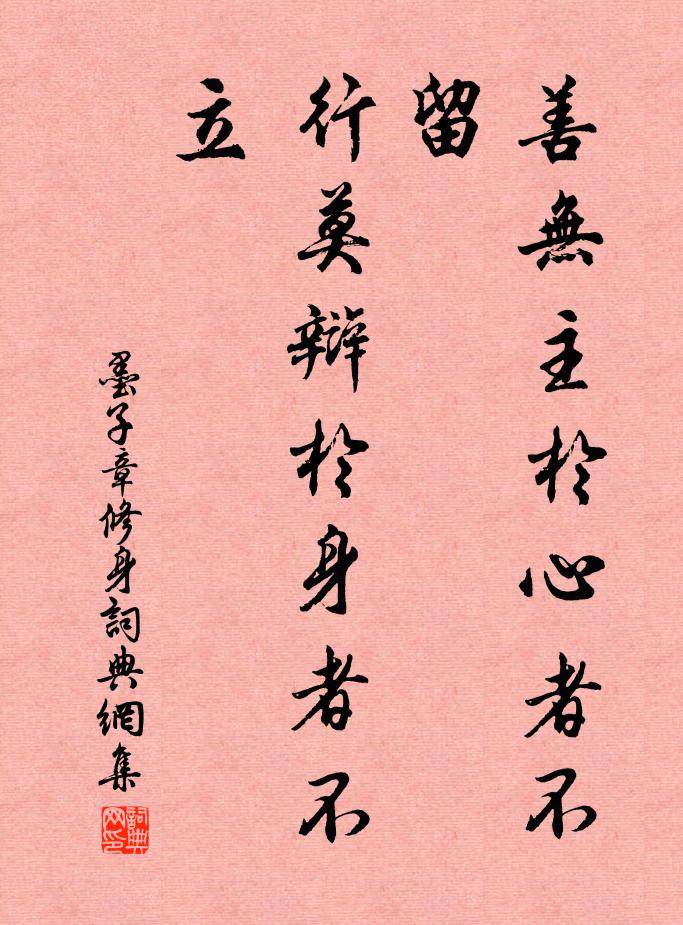 善無主於心者不
留
行莫辯於身者不
立
墨子章修身詞典網集
詞典
网印